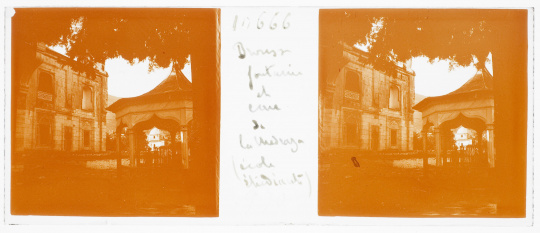 15666
Brousse
fontaine
et
cour
de
la Medersa
(école